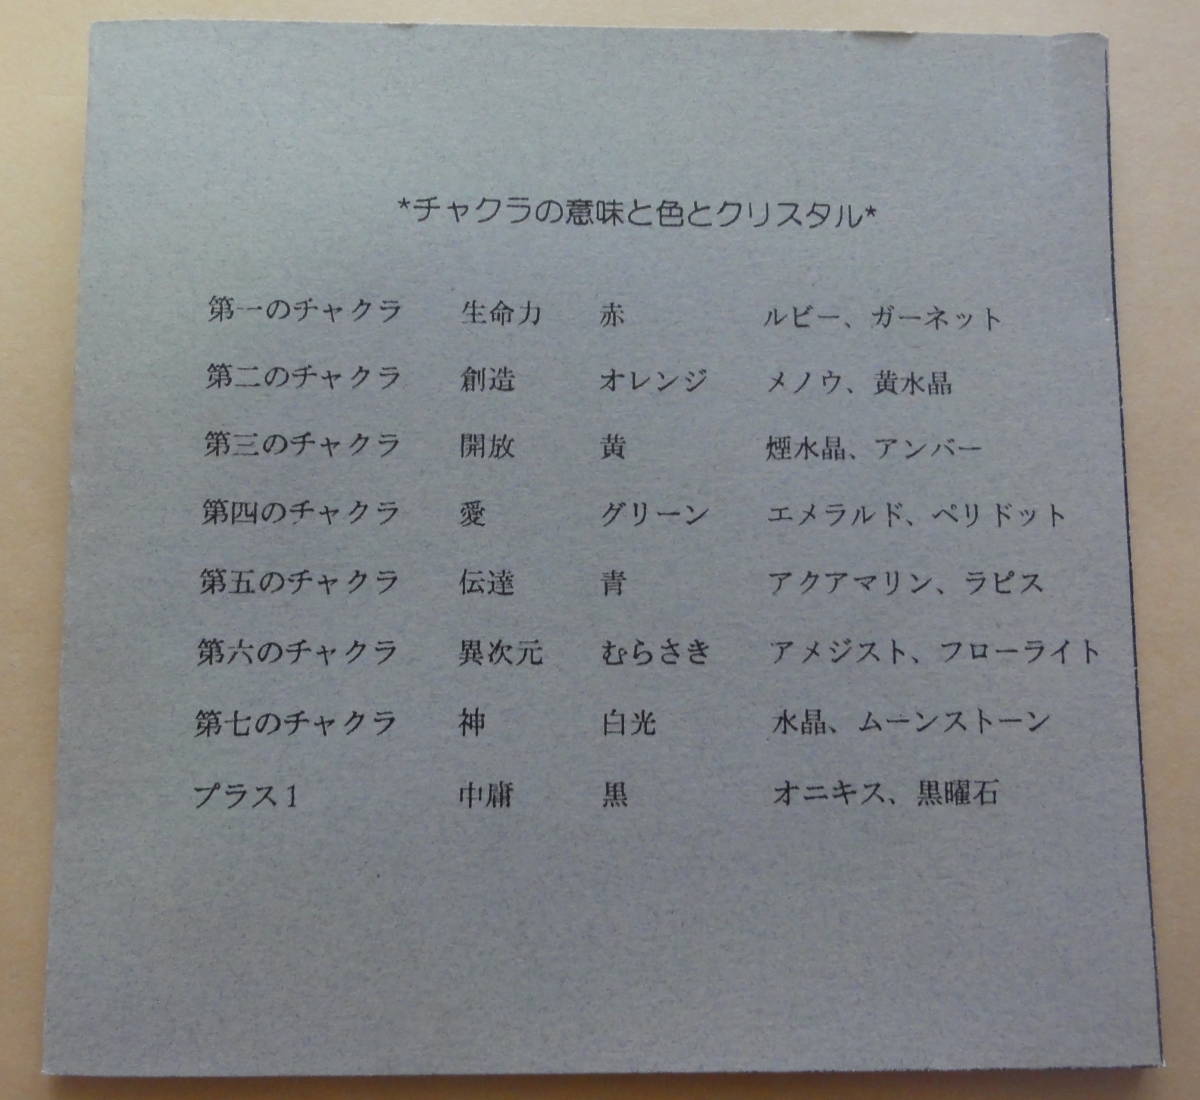 *チャクラの意味と色とクリスタル*
第一のチャクラ 生命力 赤 ルビー、ガーネット
第二のチャクラ 創造 オレンジ メノウ、黄水晶
第三のチャクラ 開放 黄 煙水晶、アンバー
第四のチャクラ 愛 グリーン エメラルド、ペリドット
第五のチャクラ 伝達 青 アクアマリン、ラピス
第六のチャクラ 異次元 むらさき アメジスト、フローライト
第七のチャクラ 神 白光 水晶、ムーンストーン
プラス1 中庸 黒 オニキス、黒曜石